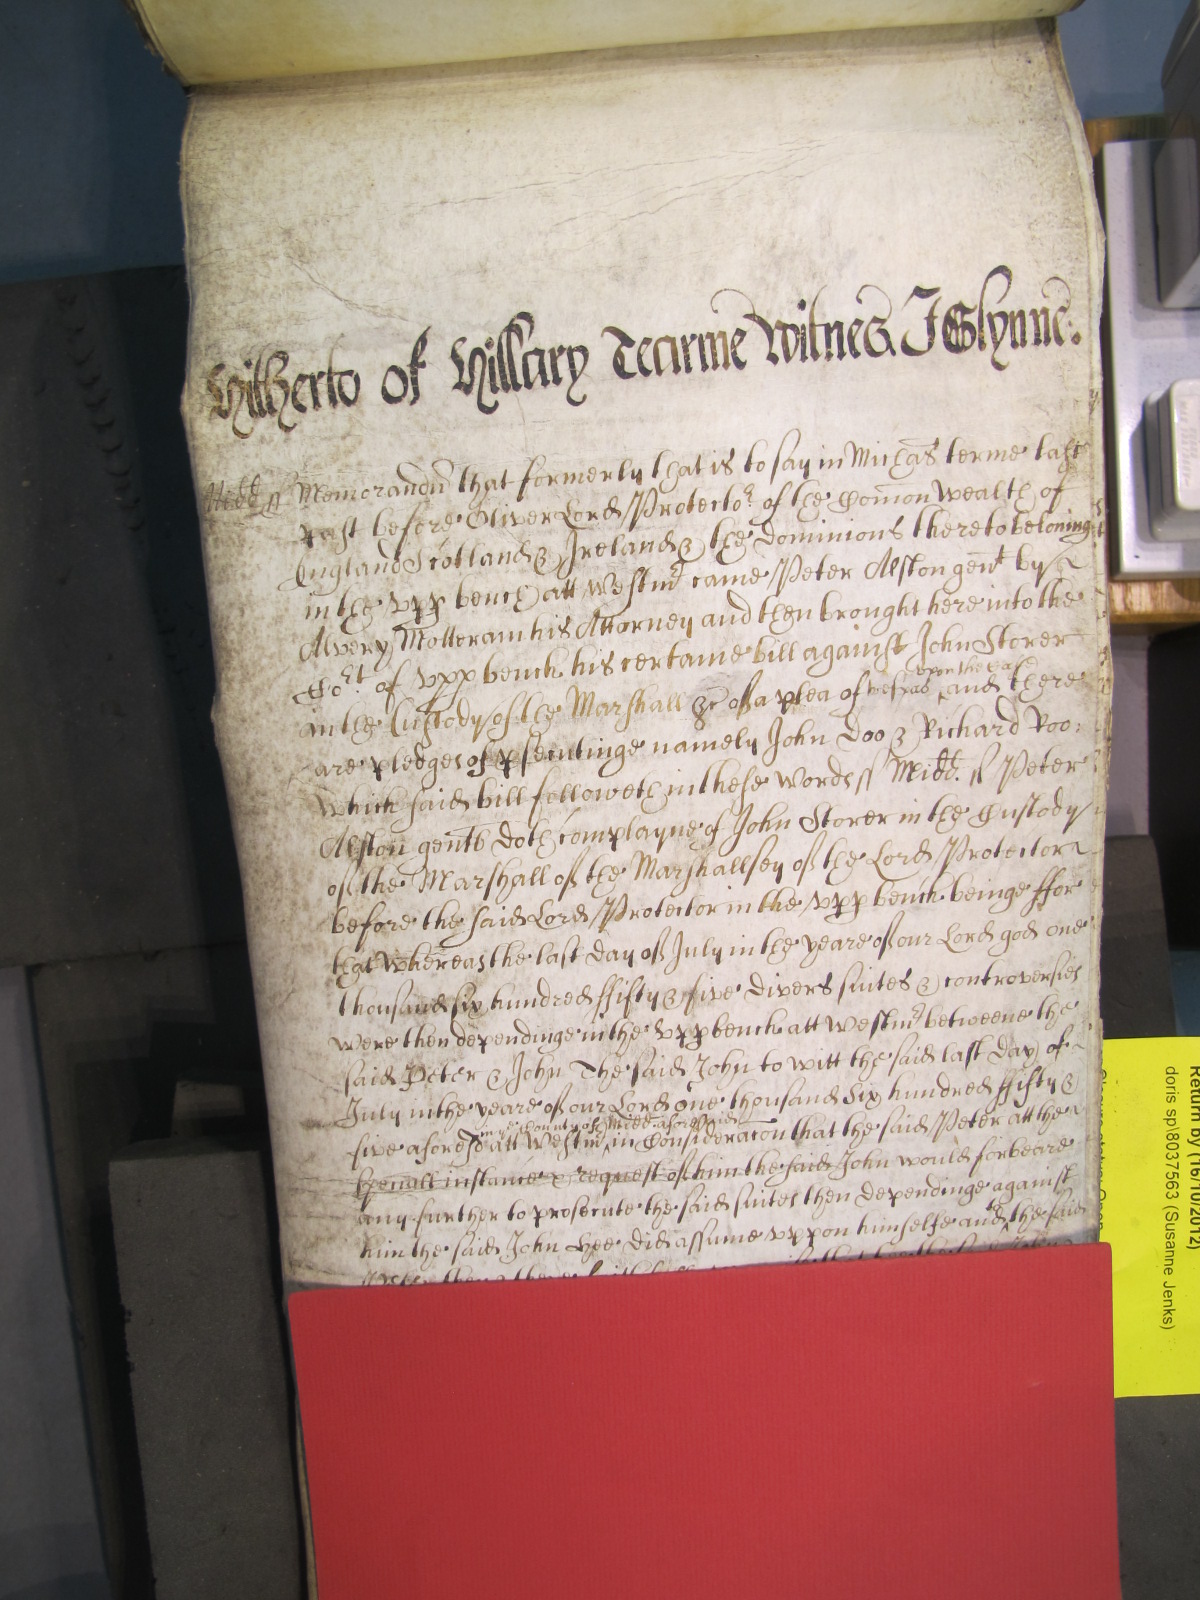 Hitherto of Hillary Tearme Witnes J Glynne.
Midd ss Memorandu that formerly that is to say in Michas terme last
past before Oliver Lord Protector of the Comon wealth of
England Scotland & Ireland & the dominions thereto beloning
in the upp bench att Westmr came Peter Alston gent by
Alvery Motteram his Attorney and then brought here into the
Cort of upp bench his certaine bill against John Storer
in the Custody of the Marshall &c of a plea of trespas upon the case and there
are pledges of psecutinge namely John Doo & Richard Roo:
which said bill followeth in these words ss Midd. ss Peter
Alston gent doth complayne of John Storer in the Custody
of the Marshall of the Marshallsey of the Lord Protector
before the said Lord Protector in the upp bench beinge ffor
that whereas the last day of July in the yeare of our Lord god one
thousand six hundred ffifty & five divers suites & controversies
were then dependinge in the upp bench att Westmr betweene the
said Peter & John The said John to witt the said last day of
July in the yeare of our Lord one thousand six hundred ffifty &
five aforesd att Westmr in ye County of Midd aforesaid in Consideracon that the said Peter att the
speciall instance & request of him the said John would forbeare
any further to prosecute the said suites then dependinge against
him the said John Hee did assume uppon himselfe and the said
Return by (16/10/2012)
doris sp\8037563 (Susanne Jenks)